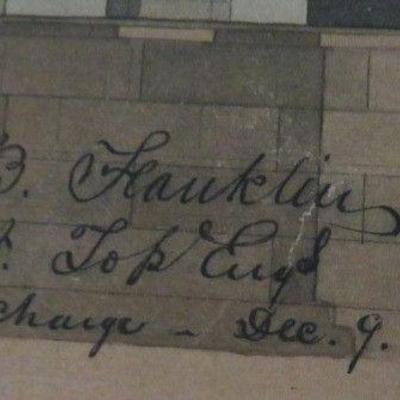 B. Franklin
. Top Engs
charge - Dec. 9.